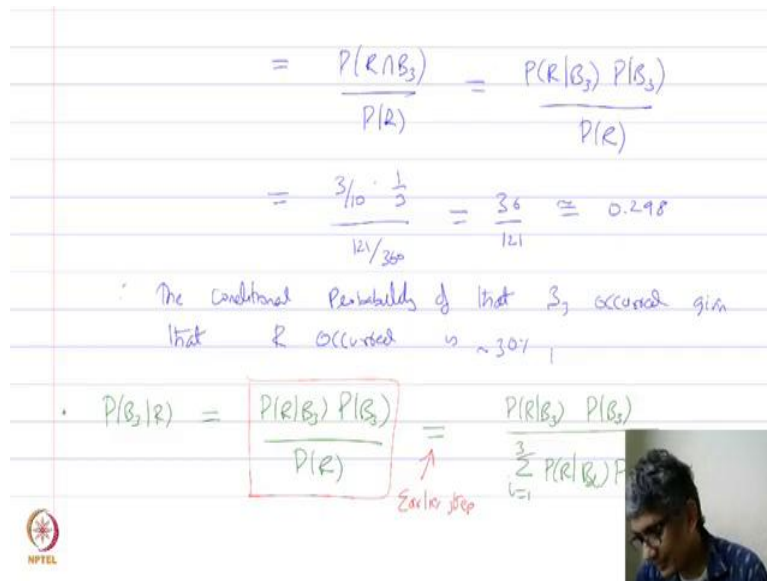 = P(R∩B₃) / P(R) = P(R|B₃) P(B₃) / P(R)
= 3/10 · 1/3 / 121/360 = 36/121 ≃ 0.298
∴ The conditional Probability of that B₃ occurred given
that R occurred is ~30%,
· P(B₃|R) = P(R|B₃) P(B₃) / P(R) = P(R|B₃) P(B₃) / 3 Σ i=1 P(R|Bᵢ) P
Earlier step
NPTEL